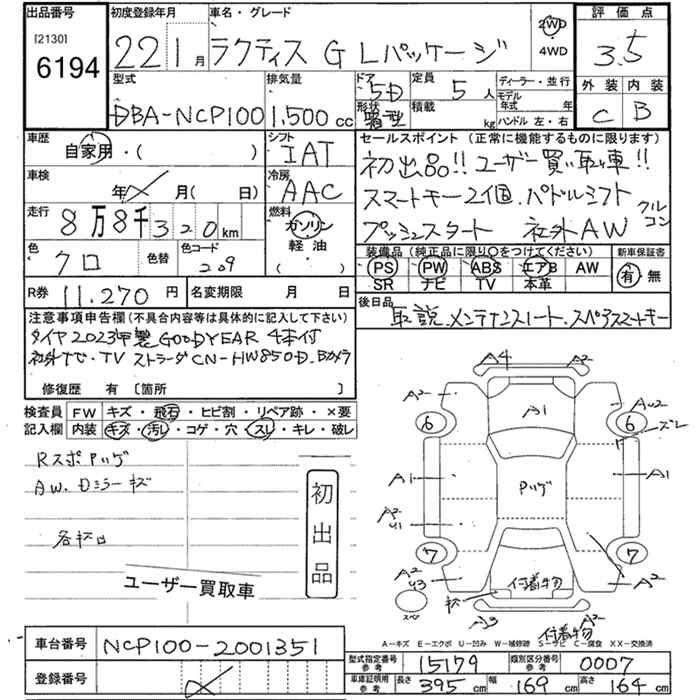 出品番号
[2130]
6194
初度登録年月
22 1月
車名・グレード
ラクティス G Lパッケージ
2WD
4WD
評価点
3.5
外装 内装
C B
型式
DBA-NCP100
排気量
1,500cc
ドア
5D
形状
箱型
定員
5人
積載
kg
ディーラー・並行
モデル年式 年
ハンドル 左・右
車歴
自家用・( )
シフト
IAT
車検
年 月(日 )
冷房
AAC
走行
8万8千320km
燃料
ガソリン
軽油
( )
色
クロ
色替
色コード
209
R券 11.270円
名変期限 月 日
セールスポイント (正常に機能するものに限ります)
初出品!! ユーザー買い取り車!!
スマートキー2個.パドルシフト クルコン
プッシュスタート 社外AW
装備品 (純正品に限り○をつけてください)
PS PW ABS エアB AW
SR ナビ TV 本革
新車保証書
有 無
後日品
取説.メンテナンスノート.スペアスマートキー
注意事項申告欄(不具合内容等は具体的に記入して下さい)
タイヤ2023年製GOODYEAR 4本付
社外ナビ・TV ストラーダCN-HW850D.Bカメラ
修復歴 有 〔箇所 〕
検査員記入欄
FW キズ・飛石・ヒビ割・リペア跡・×要
内装 キズ・汚レ・コゲ・穴・スレ・キレ・破レ
RスポPリゲ
AW.Dミラーキズ
各松口
初出品
ユーザー買取車
A4 A2
A2 A1 AU2
6 6 ズレ
A1 Pリゲ A1
A2
U1
7 7
A2
U3 付着物 A2
スペア A3 A2
付着物
A-キズ E-エクボ U-凹み W-補修跡 S-サビ C-腐食 XX-交換済
車台番号 NCP100-2001351
登録番号
型式指定番号
参考
15179
類別区分番号
参考
0007
車庫証明用
参考
長さ 395cm 幅 169cm 高さ 164cm